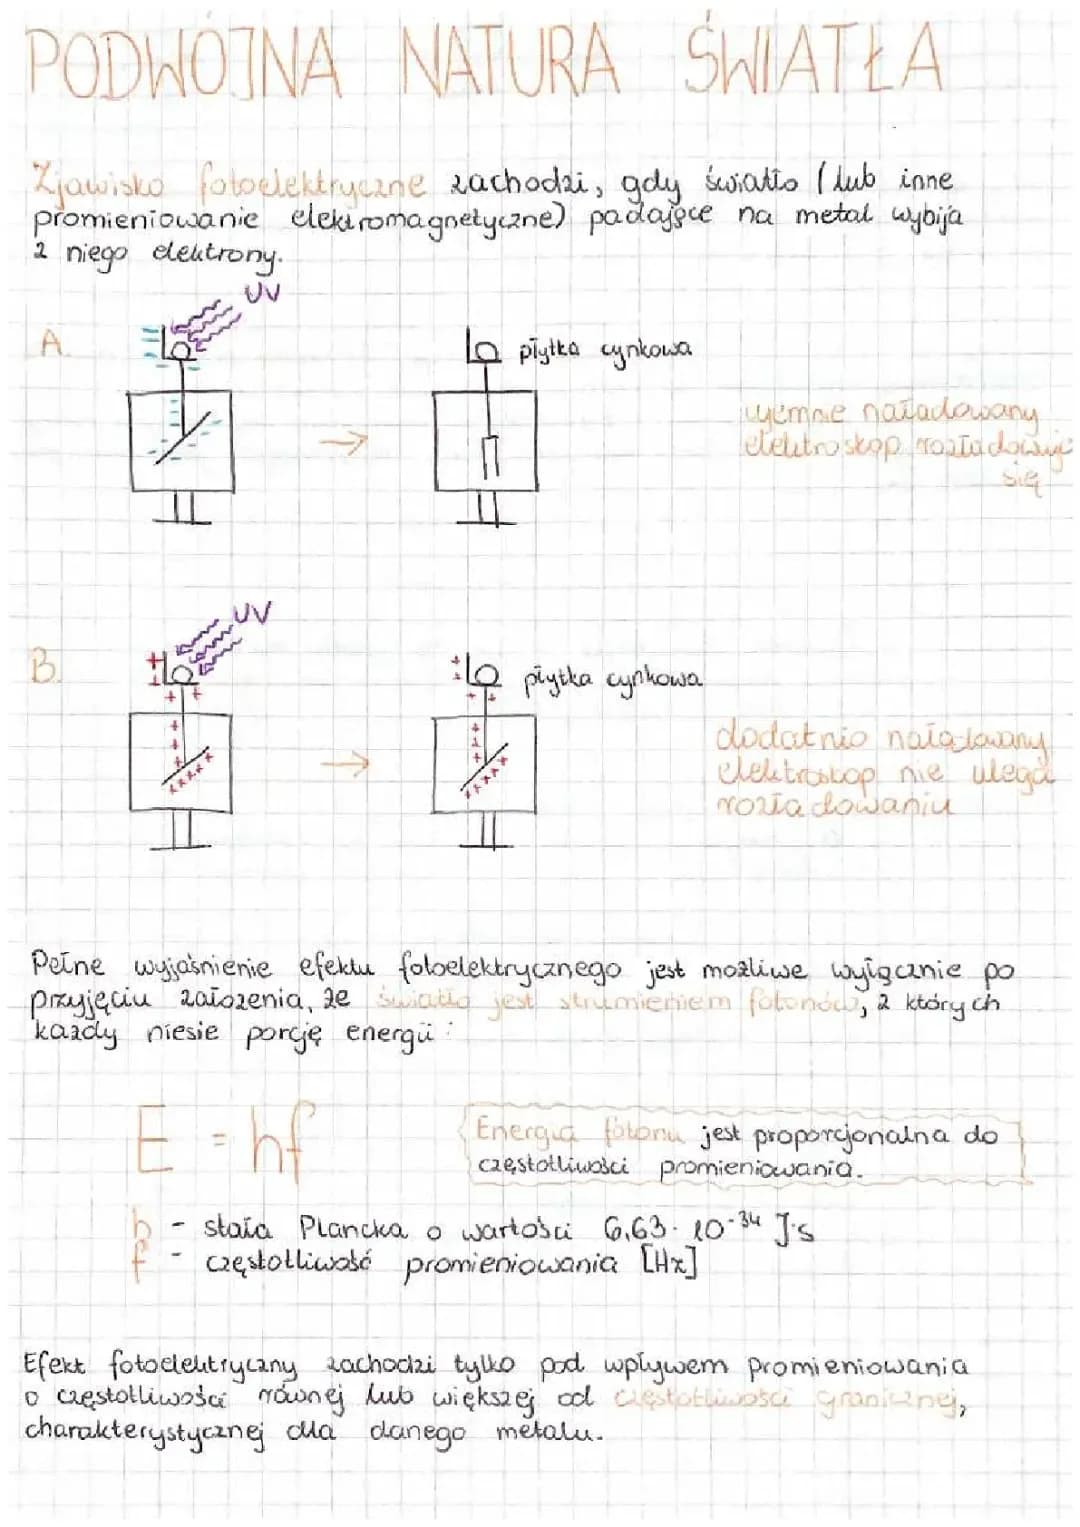 PODWÓJNA NATURA ŚWIATŁA
Zjawisko fotoelektryczne zachodzi, gdy światło (lub inne
promieniowanie elektromagnetyczne) padające na metal wybija
z niego elektrony.
UV
A.
płytka cynkowa
ujemnie naładowany
elektroskop rozładowuje
się
UV
B.
płytka cynkowa
dodatnio naładowany
elektroskop nie ulega
rozładowaniu
Pełne wyjaśnienie efektu fotoelektrycznego jest możliwe wyłącznie po
przyjęciu założenia, że światło jest strumieniem fotonów, z których
każdy niesie porcję energii:
E = hf
Energia fotonu jest proporcjonalna do
częstotliwości promieniowania.
h - stała Plancka o wartości 6,63 · 10⁻³⁴ J·s
f - częstotliwość promieniowania [Hz]
Efekt fotoelektryczny zachodzi tylko pod wpływem promieniowania
o częstotliwości równej lub większej od częstotliwości granicznej,
charakterystycznej dla danego metalu.